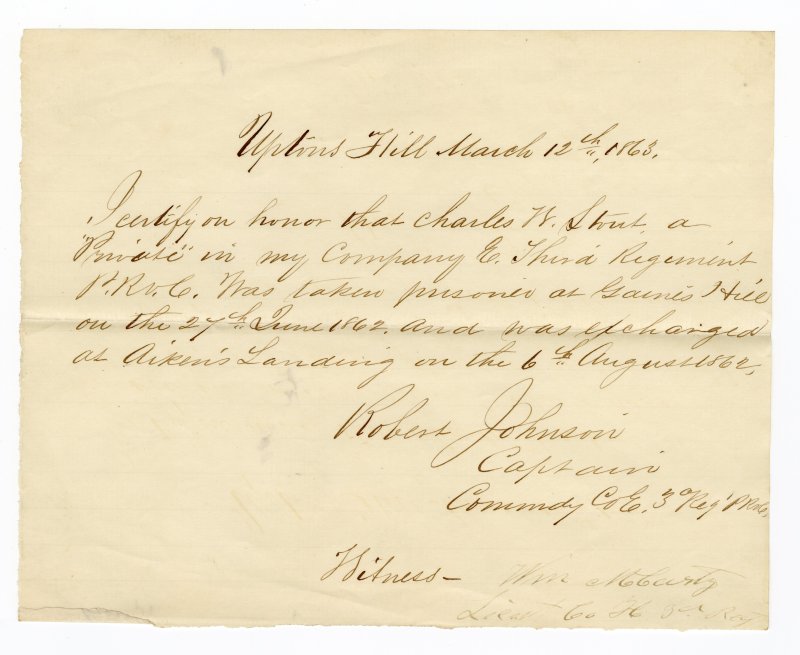 Uptons Hill March 12th, 1863.
I certify on honor that Charles W. Stout, a
"Private" in my Company E. Third Regiment
P.R.V.C. Was taken prisoner at Gaines Hill
on the 27th June 1862. and was exchanged
at Aiken's Landing on the 6th August 1862,
Robert Johnson
Captain
Commdg Co E. 3d Reg't P.R.V.C.
Witness - Wm McCarty
Lieut Co H 3rd Reg